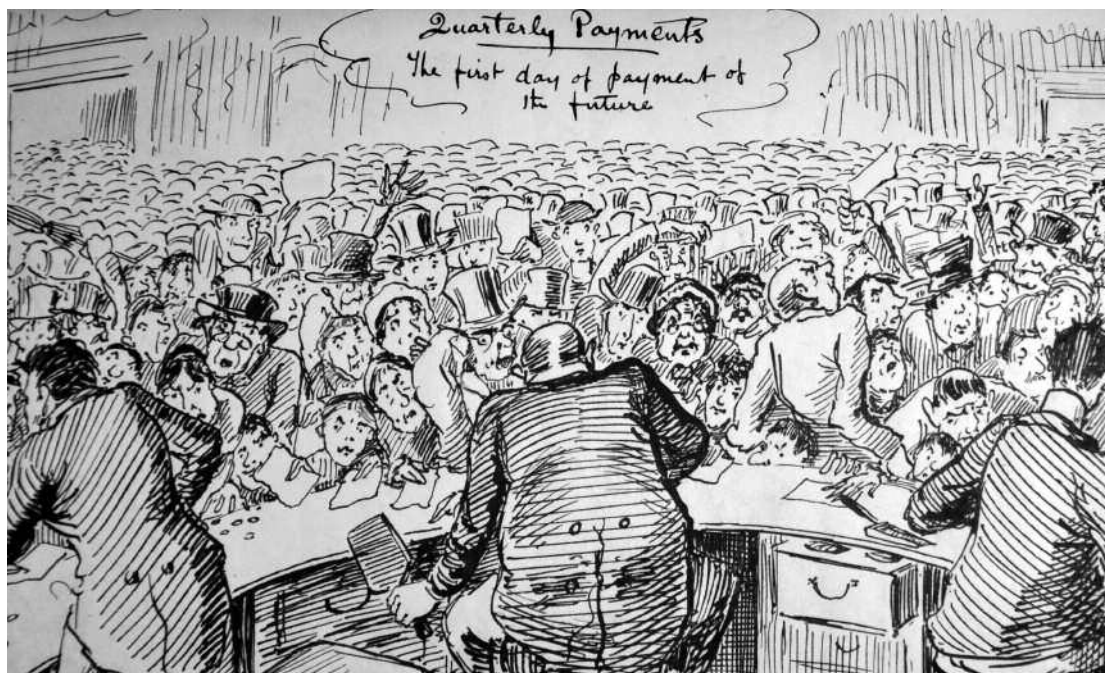 Quarterly Payments
The first day of payment of
the future